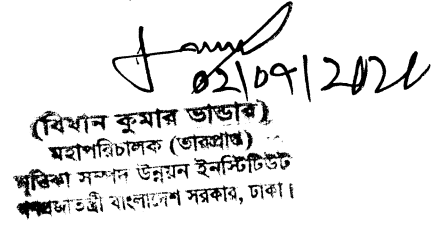 02/09/2021
(বিধান কুমার ভান্ডার)
মহাপরিচালক (ভারপ্রাপ্ত)
মৃত্তিকা সম্পদ উন্নয়ন ইনস্টিটিউট
গণপ্রজাতন্ত্রী বাংলাদেশ সরকার, ঢাকা।